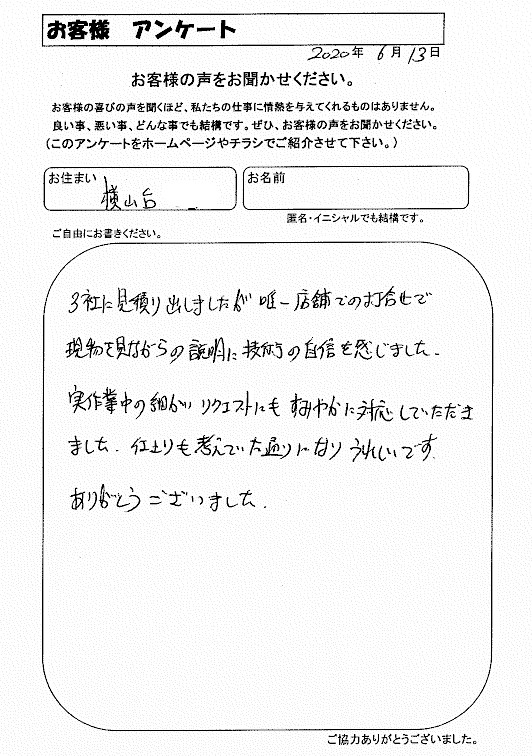 お客様 アンケート
2020年 6月 13日
お客様の声をお聞かせください。
お客様の喜びの声を聞くほど、私たちの仕事に情熱を与えてくれるものはありません。
良い事、悪い事、どんな事でも結構です。ぜひ、お客様の声をお聞かせください。
(このアンケートをホームページやチラシでご紹介させて下さい。)
お住まい 横山台
お名前
匿名・イニシャルでも結構です。
ご自由にお書きください。
3社に見積り出しましたが 唯一店舗での打合せで
現物を見ながらの説明に技術の自信を感じました.
実作業中の細かい リクエストにも すみやかに対応していただき
ました. 仕上りも考えていた通りになり うれしいです.
ありがとうございました.
ご協力ありがとうございました。